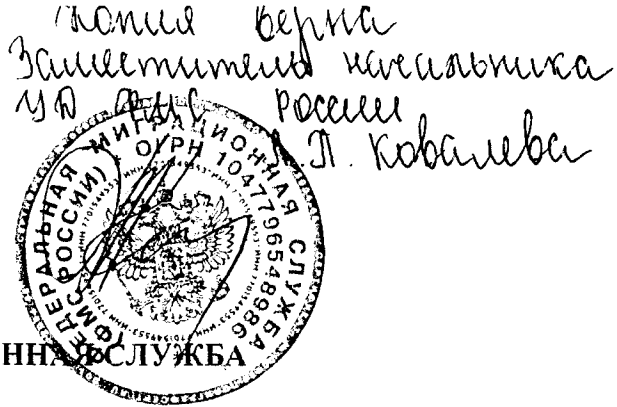 Копия верна
Заместитель начальника
УД ФМС России
Л.П. Ковалева
ФЕДЕРАЛЬНАЯ МИГРАЦИОННАЯ СЛУЖБА
(ФМС РОССИИ) * ОГРН 1047796548986
ННАЯ СЛУЖБА